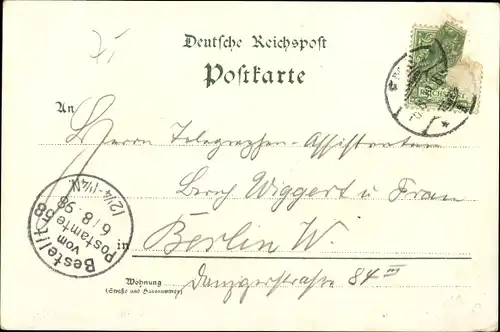 Deutsche Reichspost
Postkarte
An
Herrn Telegraphen-Assistenten
Wiggert u Frau
in Berlin W.
Wohnung
(Straße und Hausnummer)
Danzigerstraße 84 III
Bestellt
vom
Postamte 58
6/8.98
12¼-1¼N.
REICHSPOST